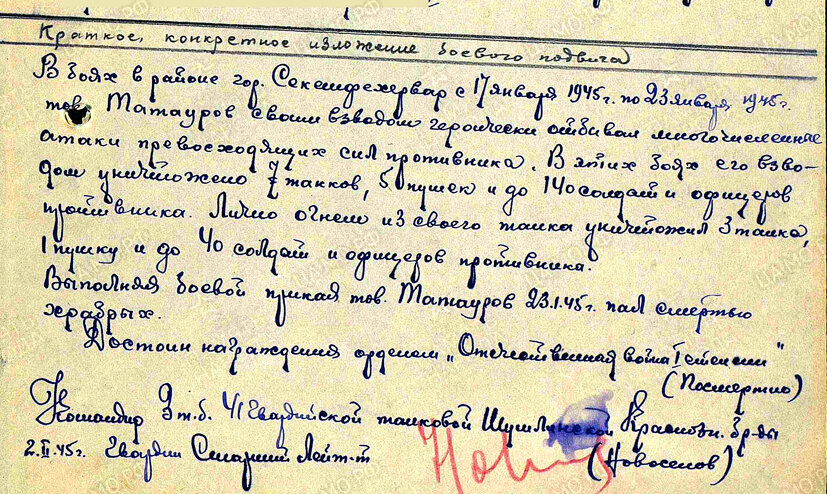 Краткое, конкретное изложение боевого подвига
В боях в районе гор. Секешфехервар с 17 января 1945г. по 23 января 1945г.
тов. Матауров своим взводом героически отбивал многочисленные
атаки превосходящих сил противника. В этих боях его взво-
дом уничтожено 7 танков, 5 пушек и до 140 солдат и офицеров
противника. Лично огнем из своего танка уничтожил 3 танка,
1 пушку и до 40 солдат и офицеров противника.
Выполняя боевой приказ тов. Матауров 23.1.45г. пал смертью
храбрых.
Достоин награждения орденом „Отечественная война I степени"
(Посмертно)
Командир 3 т.б. 41 Гвардийской танковой Шумлинской Краснозн. бр-ды
2.II.45г. Гвардии Старший Лейт-т (Новоселов)